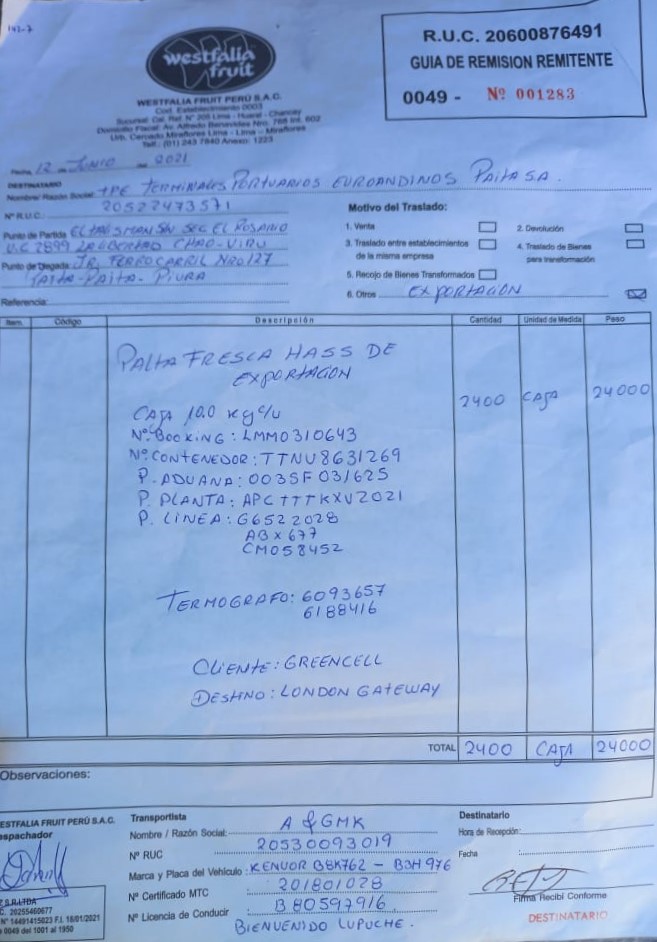 142-7
westfalia
fruit
WESTFALIA FRUIT PERÚ S.A.C.
Cod. Establecimiento 0003
Sucursal: Cal. Ref. N° 205 Lima - Huaral - Chancay
Domicilio Fiscal: Av. Alfredo Benavides Nro. 768 Int. 602
Urb. Cercado Miraflores Lima - Lima - Miraflores
Telf.: (01) 243 7840 Anexo: 1223
R.U.C. 20600876491
GUIA DE REMISION REMITENTE
0049 - Nº 001283
Fecha, 12 de JUNIO de 2021
DESTINATARIO
Nombre/ Razón Social: TPE TERMINALES PORTUARIOS EUROANDINOS PAITA S.A.
N° R.U.C.: 20522473571
Punto de Partida: EL TALISMAN SN SEC EL ROSARIO
U.C 2899 LA LIBERTAD CHAO-VIRU
Punto de Llegada: JR. FERROCARRIL NRO 127
PAITA-PAITA-PIURA
Referencia:
Motivo del Traslado:
1. Venta
2. Devolución
3. Traslado entre establecimientos de la misma empresa
4. Traslado de Bienes para transformación
5. Recojo de Bienes Transformados
6. Otros EXPORTACION
Item. Código Descripción Cantidad Unidad de Medida Peso
PALTA FRESCA HASS DE
EXPORTACION
2400 CAJA 24000
CAJA 10.0 Kg c/u
N° BOOKING: LMM0310643
N° CONTENEDOR: TTNU8631269
P. ADUANA: 003SF031625
P. PLANTA: APCTTTKXV2021
P. LINEA: G6522028
ABX677
CM058452
TERMOGRAFO: 6093657
6188416
CLIENTE: GREENCELL
DESTINO: LONDON GATEWAY
TOTAL 2400 CAJA 24000
Observaciones:
ESTFALIA FRUIT PERÚ S.A.C.
espachador
S.R.LTDA
C. 20255460677
N° 14491415023 F.I. 18/01/2021
0049 del 1001 al 1950
Transportista
Nombre / Razón Social: A & GMK
N° RUC 20530093019
Marca y Placa del Vehículo: KENVOR B8K762 - B3H976
N° Certificado MTC 201801028
N° Licencia de Conducir B80597916
BIENVENIDO LUPUCHE.
Destinatario
Hora de Recepción:
Fecha
Firma Recibí Conforme
DESTINATARIO